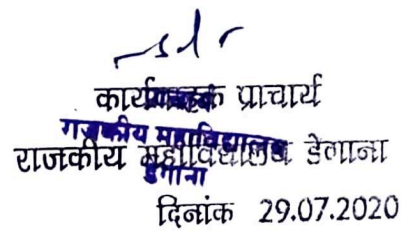 कार्यवाहक प्राचार्य
राजकीय महाविद्यालय
राजकीय महाविद्यालय डेगाना
डेगाना
दिनांक 29.07.2020